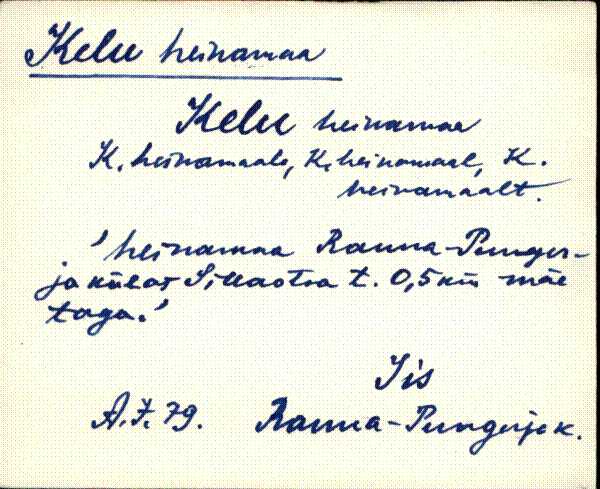 Kelu heinamaa
Kelu heinamaa
K. heinamaale, K. heinamaal, K.
heinamaalt.
'heinamaa Rauna-Punger-
ja külas Sillaotsa t. 0,5 km mäe
taga.'
Iis
A. Ž. 79. Rauna-Pungerja k.